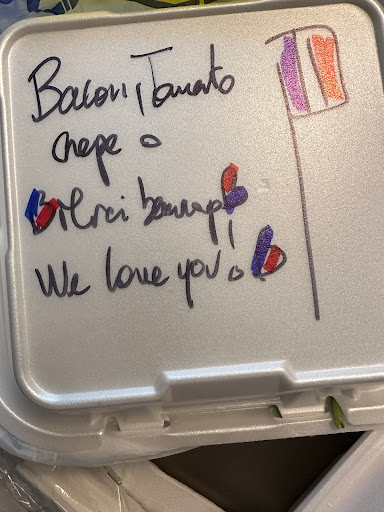 Bacon, Tomato
Crepe
Merci beaucoup!
We love you!